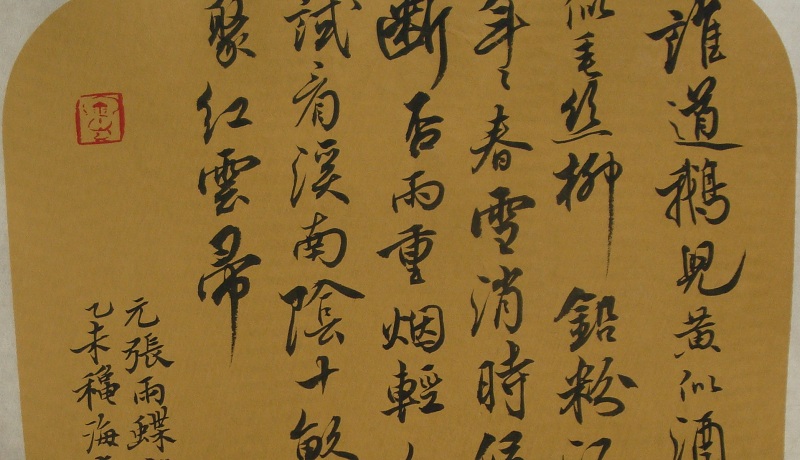 誰道鵝兒黃似酒
似毛丝柳鉛粉
年々春雪消時候
斷否雨重烟輕
試看溪南陰十畝
聚紅雲帚
元張雨蝶
乙未穐海